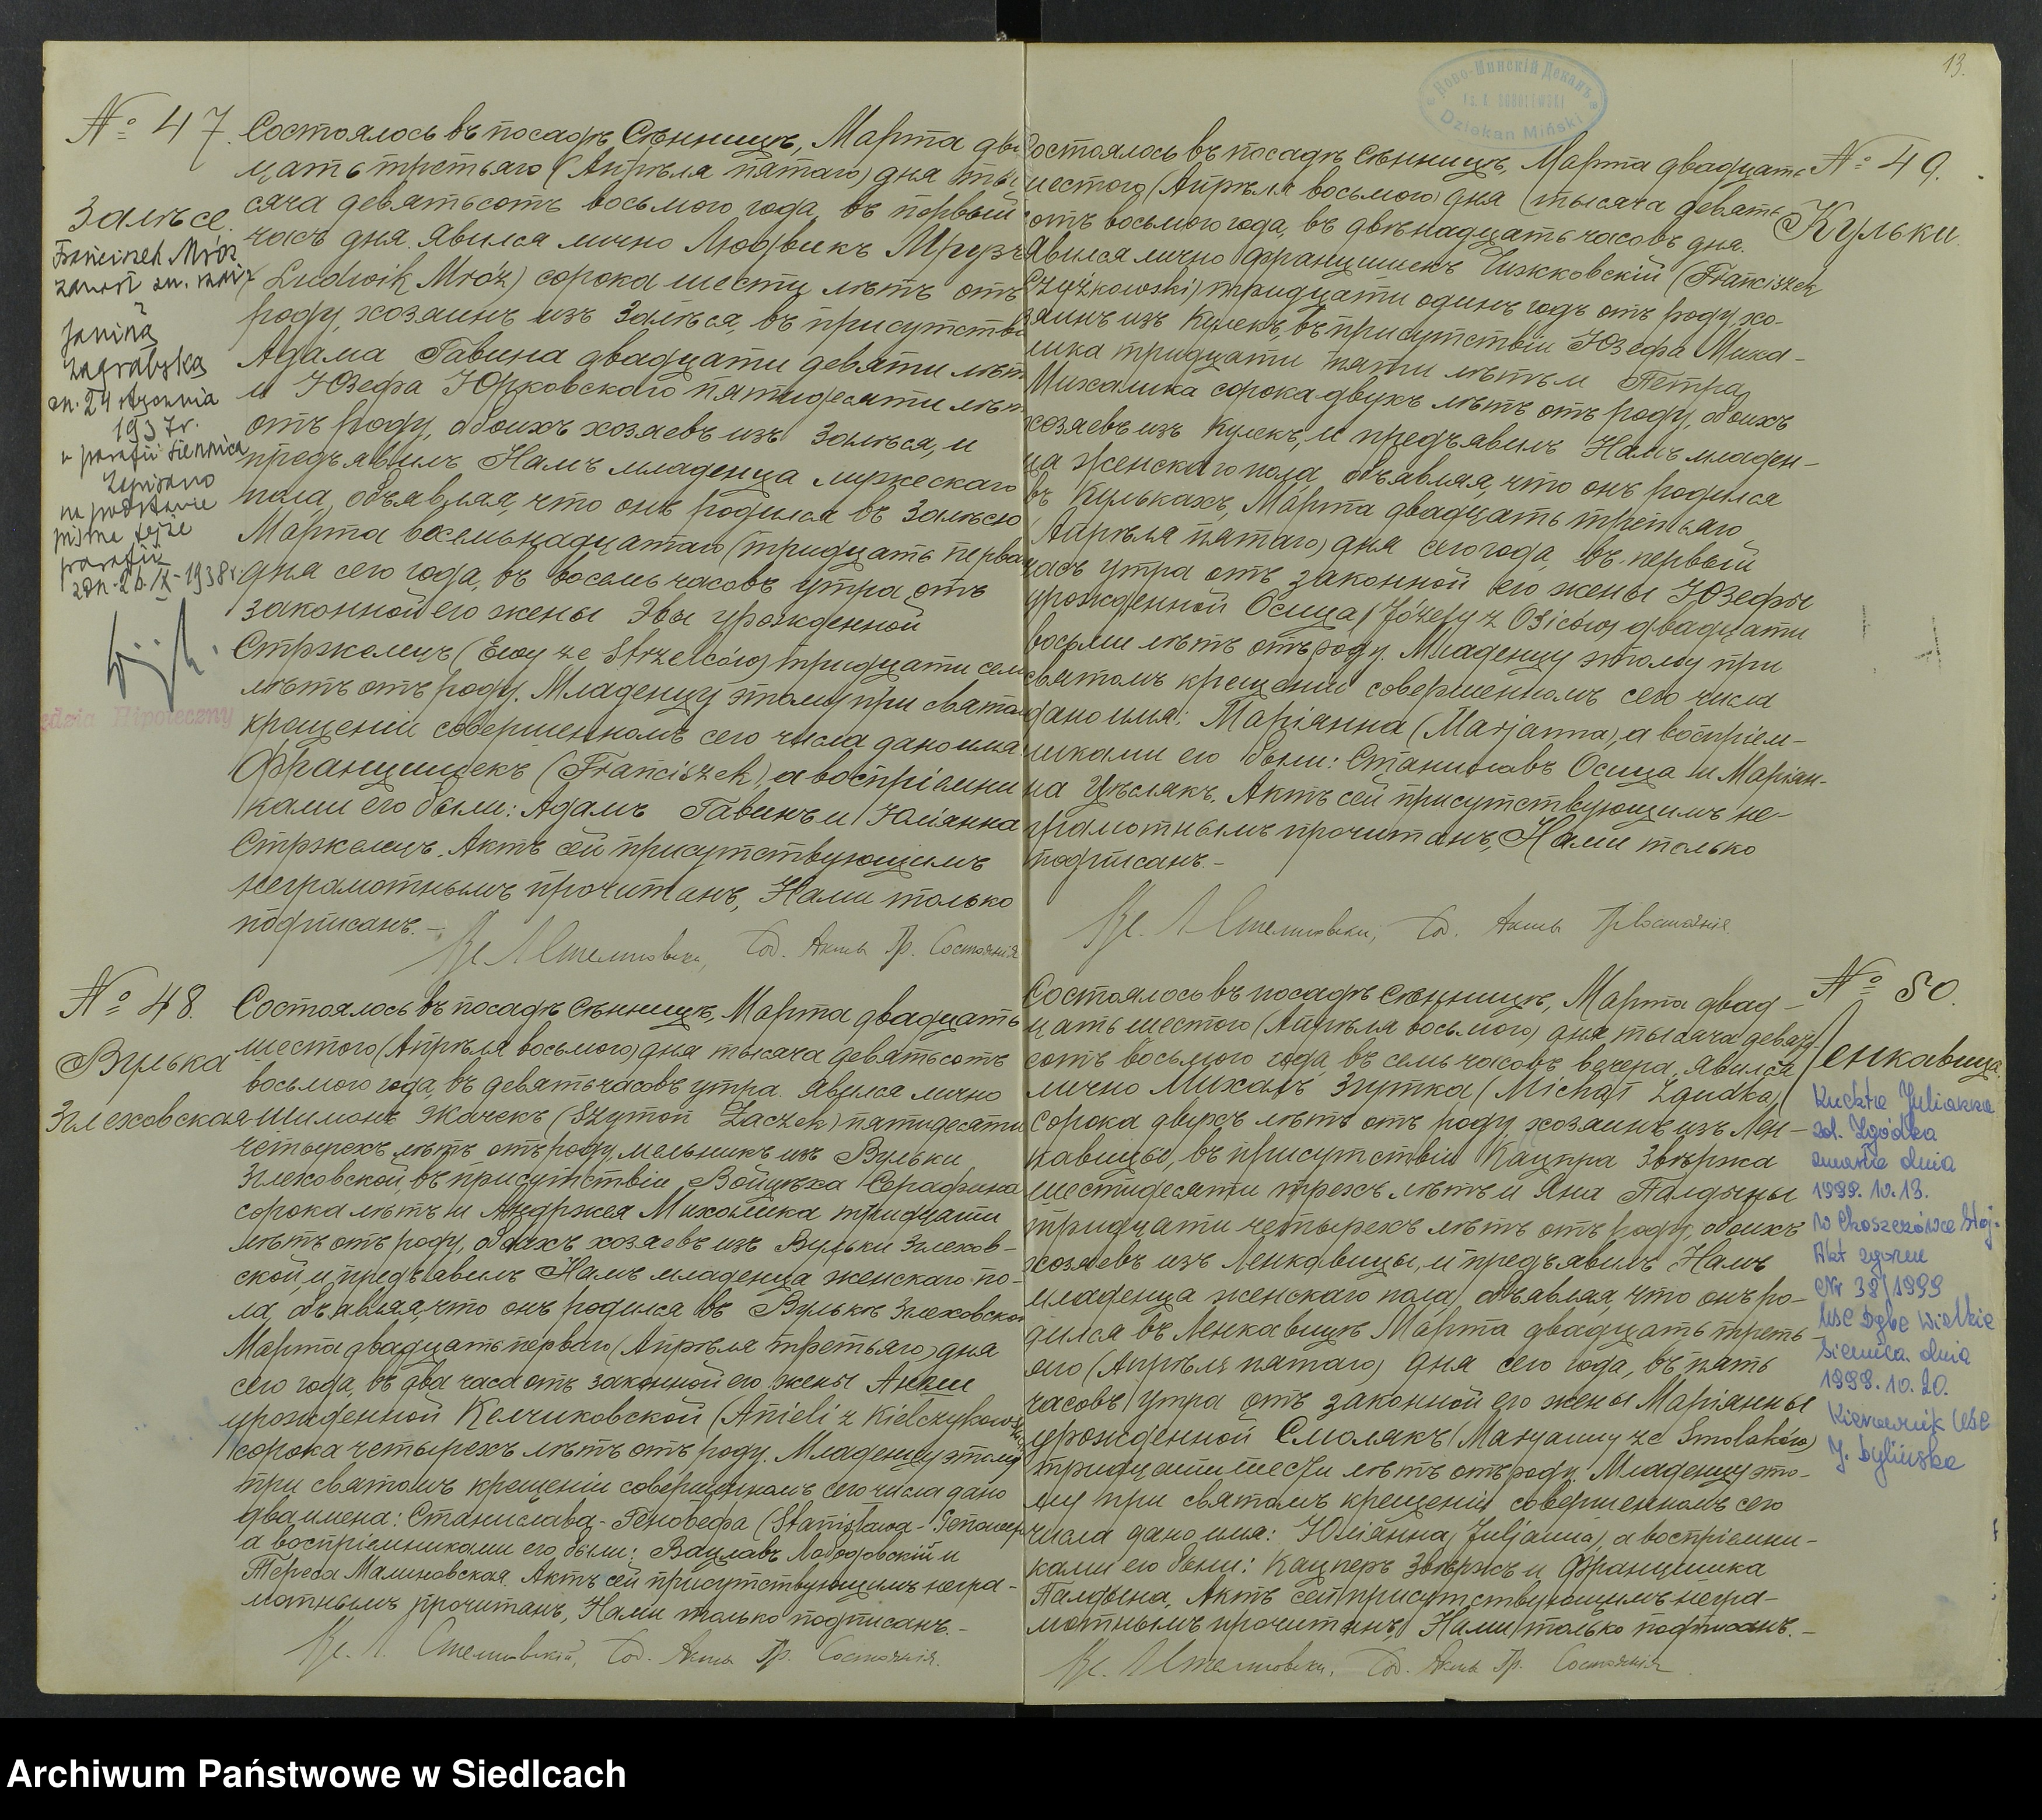 № 47.
Залѣсе.
Franciszek Mróz
zawarł zw. małż
z
Janiną
Zagrabską
dn. 24 stycznia
1937 r.
w parafii Siennica
Zapisano
na podstawie
pisma tejże
parafii
dn. 20.IX-1938 r.
Hipoteczny
Состоялось въ посадѣ Сѣнницѣ, Марта два
цать третьяго (Апрѣля пятаго) дня ты
сяча девятьсотъ восьмого года, въ первый
часъ дня. Явился лично Людвикъ Мрузъ
(Ludwik Mróz) сорока шести лѣтъ отъ
роду, хозяинъ изъ Залѣся, въ присутствіи
Адама Гавина двадцати девяти лѣтъ
и Юзефа Юрковскаго пятидесяти лѣтъ
отъ роду, обоихъ хозяевъ изъ Залѣся, и
предъявилъ Намъ младенца мужескаго
пола, объявляя, что онъ родился въ Залѣсю
Марта восемьнадцатаго (тридцать перваго
дня сего года, въ восемь часовъ утра отъ
законной его жены Эвы урожденной
Стржелецъ (Ewy ze Strzelców) тридцати семи
лѣтъ отъ роду. Младенцу этому при святомъ
крещеніи совершенномъ сего числа дано имя
Францишекъ (Franciszek), а воспріемни
ками его были: Адамъ Гавинъ и Юліанна
Стржелецъ. Актъ сей присутствующимъ
неграмотнымъ прочитанъ, Нами только
подписанъ.-
Сод. Актъ Гр. Состоянія
№ 48.
Вулька
Згпеховская
Состоялось въ посадѣ Сѣнницѣ, Марта двадцать
шестого (Апрѣля восьмого) дня тысяча девятьсотъ
восьмого года, въ девять часовъ утра. Явился лично
Шимонъ Жачекъ (Szymon Żaczek) пятидесяти
четырехъ лѣтъ отъ роду, мельникъ изъ Вульки
въ присутствіи Войцѣха Серафина
сорока лѣтъ и Андржея Михалика тридцати
лѣтъ отъ роду, обоихъ хозяевъ изъ Вульки
ской, и предъявилъ Намъ младенца женскаго по-
ла, объявляя, что онъ родился въ Вулькѣ
Марта двадцать перваго (Апрѣля третьяго) дня
сего года, въ два часа отъ законной его жены Анели
урожденной Келчиковской (Anieli z Kielczykowskich
сорока четырехъ лѣтъ отъ роду. Младенцу этому
при святомъ крещеніи совершенномъ сего числа дано
два имена: Станислава-Геновефа (Stanisława-Genowefa
а воспріемниками его были: Вацлавъ и
Тереса Малиновская. Актъ сей присутствующимъ негра-
мотнымъ прочитанъ, Нами только подписанъ.-
Сод. Актъ Гр. Состоянія.
13.
Ново-Минскій Деканъ
Dziekan Miński
№ 49.
Кульки.
Состоялось въ посадѣ Сѣнницѣ, Марта двадцать
шестого (Апрѣля восьмого) дня тысяча девять
сотъ восьмого года, въ двѣнадцать часовъ дня.
Явился лично Францишекъ Чижковскій (Franciszek
Czyżkowski) тридцати одинъ годъ отъ роду, хо-
зяинъ изъ Кулекъ, въ присутствіи Юзефа Миха-
лика тридцати пяти лѣтъ и Петра
Михалика сорока двухъ лѣтъ отъ роду, обоихъ
хозяевъ изъ Кулекъ, и предъявилъ Намъ младен-
ца женскаго пола, объявляя, что онъ родился
въ Кулькахъ, Марта двадцать третьяго
(Апрѣля пятаго) дня сего года, въ первый
часъ утра отъ законной его жены Юзефы
урожденной Осица (Józefy z Osiców) двадцати
восьми лѣтъ отъ роду. Младенцу этому при
святомъ крещеніи совершенномъ сего числа
дано имя: Маріянна (Marjanna), а воспріем-
никами его были: Станиславъ Осица и Маріян-
на Цѣслякъ. Актъ сей присутствующимъ не-
грамотнымъ прочитанъ, Нами только
подписанъ.-
Сод. Актъ Гр. Состоянія.
№ 50.
Ленкавица.
Kuchta Julianna
zd. Zgódka
zmarła dnia
1999.10.13.
w Choszczówce Stoj.
Akt zgonu
Nr 38/1999
USC Dębe Wielkie
Siennica dnia
1999.10.20.
Kierownik USC
Состоялось въ посадѣ Сѣнницѣ, Марта двад-
цать шестого (Апрѣля восьмого) дня, тысяча девять
сотъ восьмого года, въ семь часовъ вечера. Явился
лично Михалъ Згутка (Michał Zgudka)
сорока двухъ лѣтъ отъ роду, хозяинъ изъ Лен-
кавицы, въ присутствіи Кацпра Звѣржа
шестидесяти трехъ лѣтъ и Яна Палдыны
тридцати четырехъ лѣтъ отъ роду, обоихъ
хозяевъ изъ Ленкавицы, и предъявилъ Намъ
младенца женскаго пола, объявляя, что онъ ро-
дился въ Ленкавицѣ Марта двадцать треть-
яго (Апрѣля пятаго) дня сего года, въ пять
часовъ утра отъ законной его жены Маріянны
урожденной Смолякъ (Maryanny ze Smolaków)
тридцати шести лѣтъ отъ роду. Младенцу это-
му при святомъ крещеніи совершенномъ сего
числа дано имя: Юліянна (Juljanna), а воспріемни-
ками его были: Кацперъ Звѣржъ и Францишка
Палдына. Актъ сей присутствующимъ негра-
мотнымъ прочитанъ, Нами только подписанъ.-
Сод. Актъ Гр. Состоянія
Archiwum Państwowe w Siedlcach